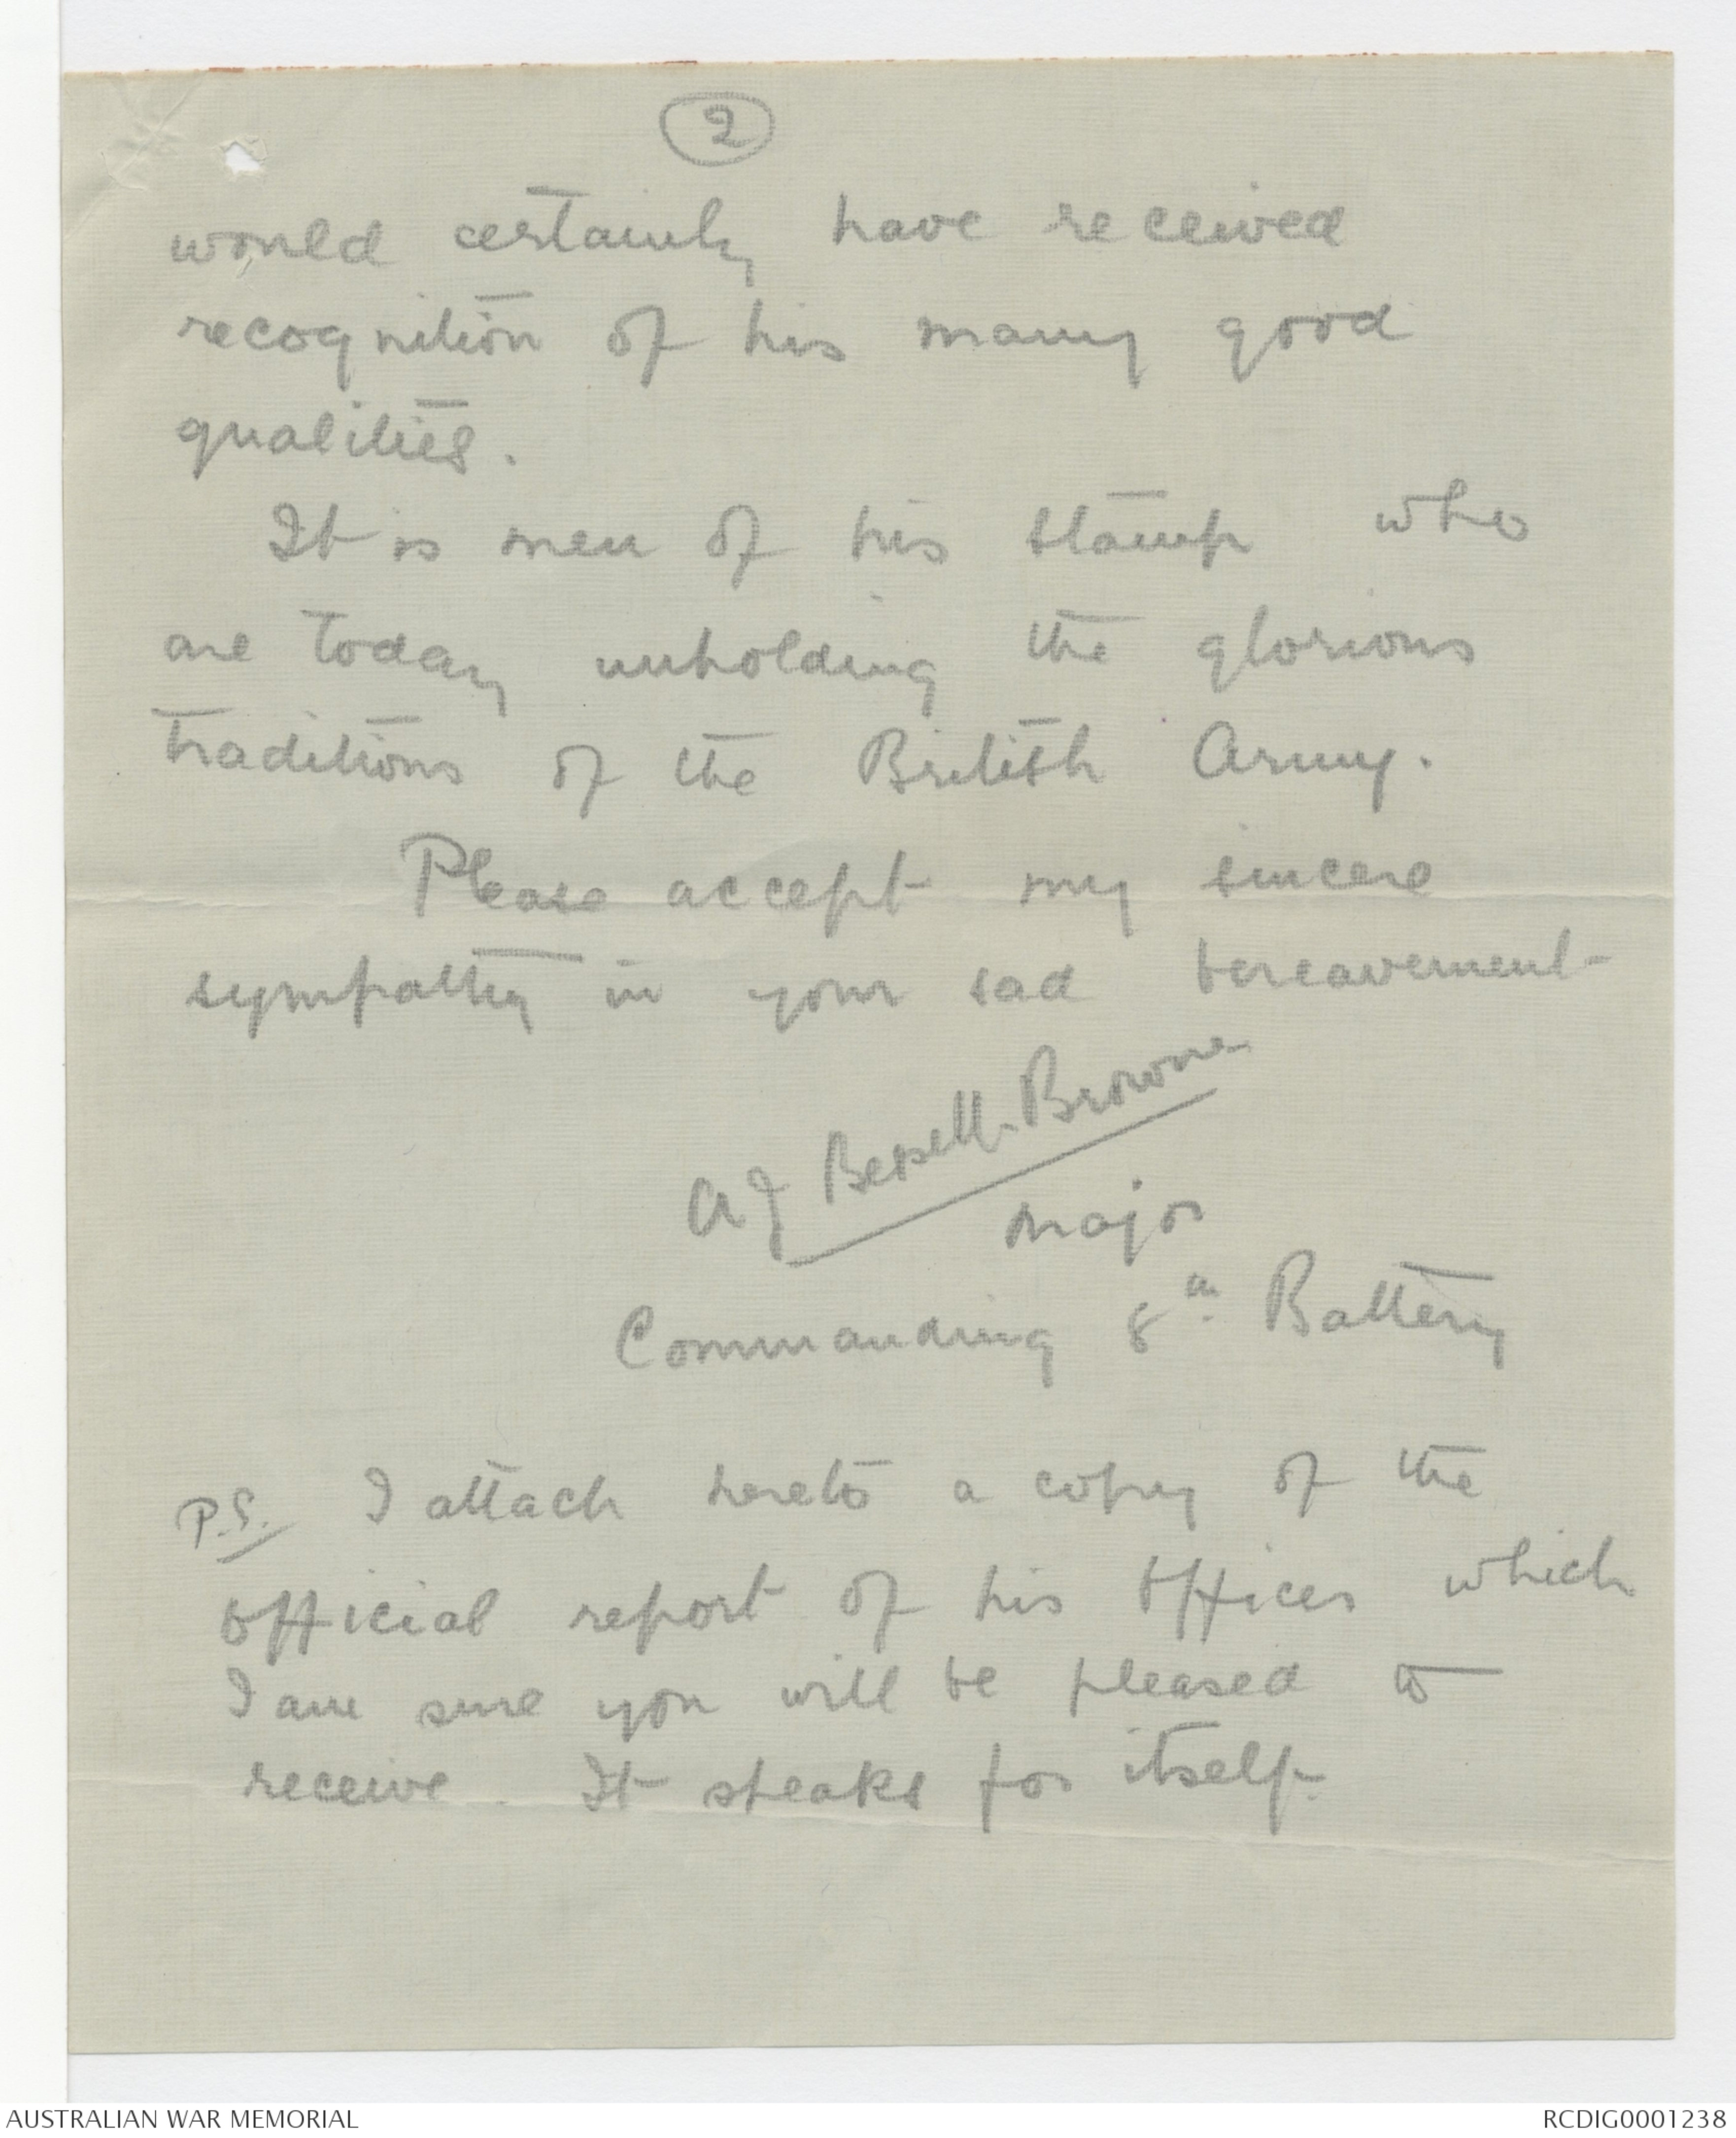 2
would certainly have received
recognition of his many good
qualities.
It is men of his stamp who
are today upholding the glorious
traditions of the British Army.
Please accept my sincere
sympathy in your sad bereavement
A J Bessell-Browne
Major
Commanding 8th Battery
P.S. I attach hereto a copy of the
official report of his Officer which
I am sure you will be pleased to
receive. It speaks for itself.
AUSTRALIAN WAR MEMORIAL
RCDIG0001238